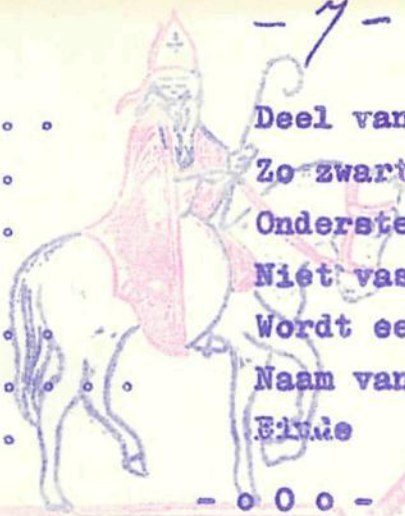 - 7 -
. . Deel van
. Zo zwart
. Onderste
Niét vas
. . Wordt ee
. . . . Naam van
. Einde
- o O o -